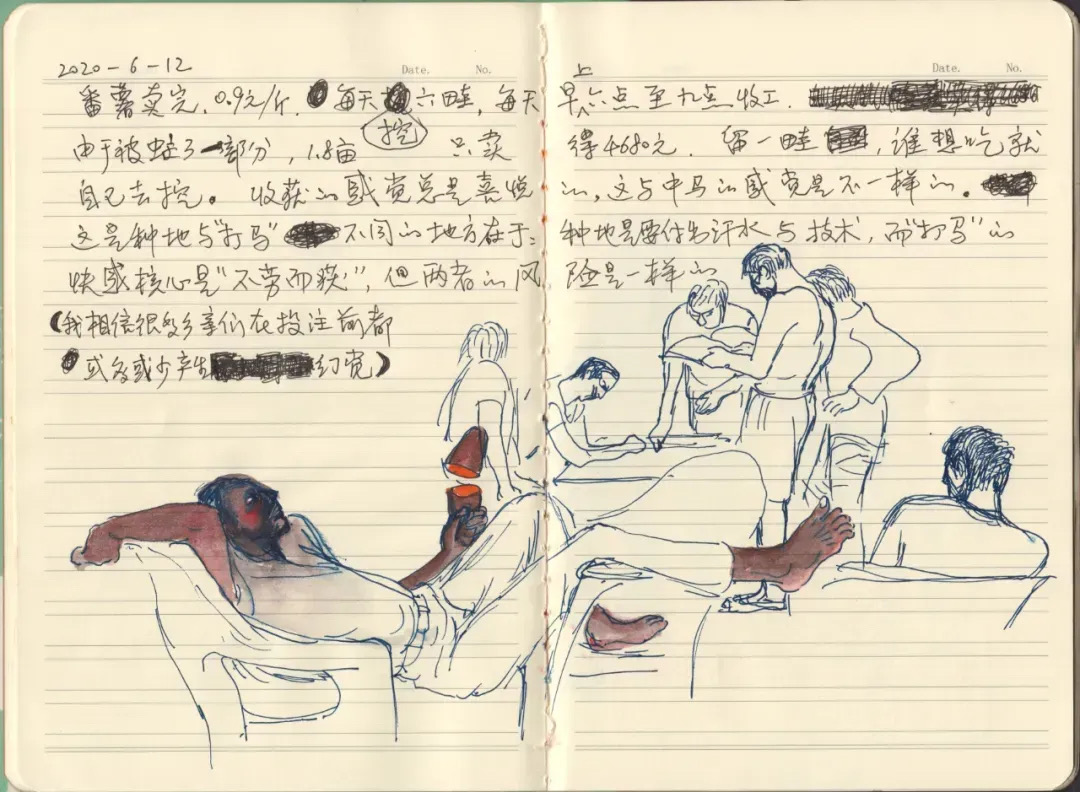 Date. No. Date. No.
2020-6-12
番薯卖完,0.9元/斤. 每天挖六畦,每天早上六点至九点收工.
由于被蛀了一部分,1.8亩 只卖得4680元. 留一畦,谁想吃就
自己去挖。收获的感觉总是喜悦的,这与中马的感觉是不一样的。
这是种地与"打马"不同的地方在于:种地是要付出汗水与技术,而"打马"的
快感核心是"不劳而获",但两者的风险是一样的
(我相信很多乡亲们在投注前都
或多或少产生幻觉)